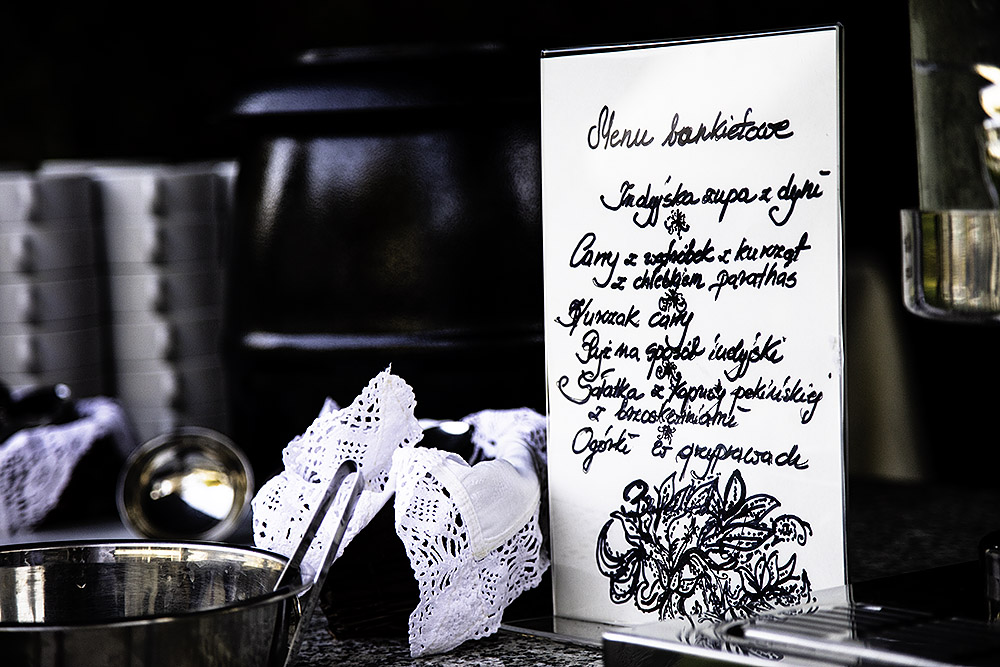 Menu bankietowe
Indyjska zupa z dyni
Cary z wątróbek z kurcząt
z chlebkiem parathas
Kurczak cary
Ryż na sposób indyjski
Sałatka z kapusty pekińskiej
z brzoskwiniami
Ogórki w przyprawach